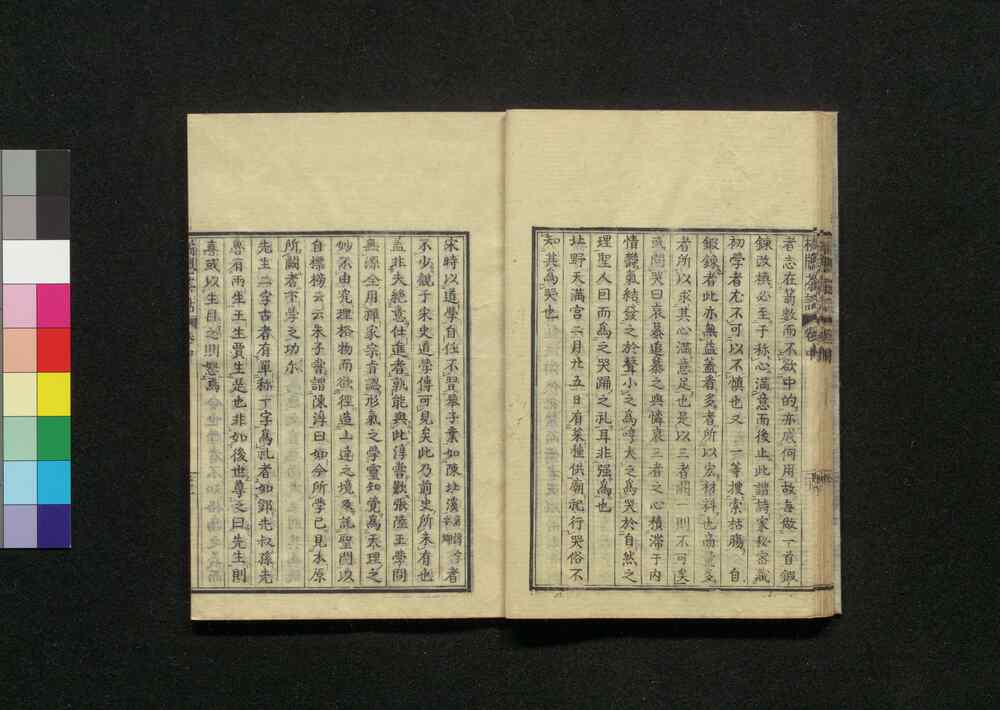 者志在箭數而不欲中的亦成何用故每做一首鍜
鍊改換必至于称心滿意而後止此謂詩家秘密藏
初学者尤不可以不慎也又一等搜索枯腸自
鍜鍊者此亦無益蓋看多者所以
者所以求其心滿意足也是以三者闕一則不可矣
或問哭曰哀慕追慕之與憐哀三者之心積滞于内
情鬱氣結發之於聲小之為大之為哭於自然之
理聖人因而為之哭踊之礼耳非强為也
北野天滿宮二月廿五日有菜種供廟祀行哭俗不
知其為哭也
宋時以道學自任不習擧子業如陳北溪者
不少觀于宋史道學傳可見矣此乃前史所未有也
盖非夫絶意仕進者孰能與此淳嘗歎張陸王學問
無源全用禪家宗旨認形氣之學靈知覺為天理之
妙不由窮理格物而欲径造上達之境反託聖門以
自標榜云云朱子嘗謂陳淳曰如今所學已見本原
所闕者下學之功尓
先生二字古者有單称丁字為礼者如鄧先叔孫先
魯有兩生王生賈生是也非如後世尊之曰先生則
喜或以生目之則怒焉